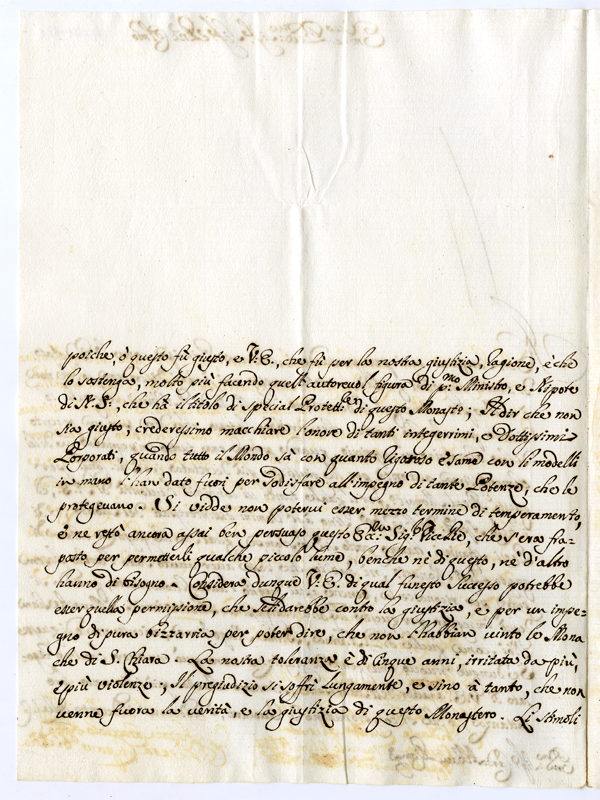 poiche, ò questo fù giusto, e V. E., che fù per la nostra giustizia, ragione, è che
lo sostenga, molto più facendo quell'autorevol figura di p.mo Ministro, e Nipote
di N. S., che hà il titolo di special Protett.re di questo Monast.o; Il dir che non
sia giusto, crederessimo macchiare l'onore di tanti integerrimi, e Dottissimi
Porporati, quando tutto il Mondo sà con quanto rigoroso esame con li modelli
in mano l'han dato fuori per sodisfare all'impegno di tante Potenze, che le
protegevano. Si vidde non potervi esser mezzo termine di temperamento,
e ne restò ancora assai ben persuaso questo Ecc.mo Sig.r che s'era fra-
posto per permetterli qualche piccolo lume, benche nè di questo, nè d'altro
hanno di bisogno. Consideri dunque V. E. di qual funesto successo potrebbe
esser quella permissione, che se li darebbe contro la giustizia, e per un impe-
gno di pura bizzarria per poter dire, che non l'habbian vinto le Mona
che di S. Chiara. La nostra toleranza è di cinque anni, irritata da più,
e più violenze; Il pregiudizio si soffrì lungamente, e sino à tanto, che non
venne fuora la verità, e la giustizia di questo Monastero. Li stimoli